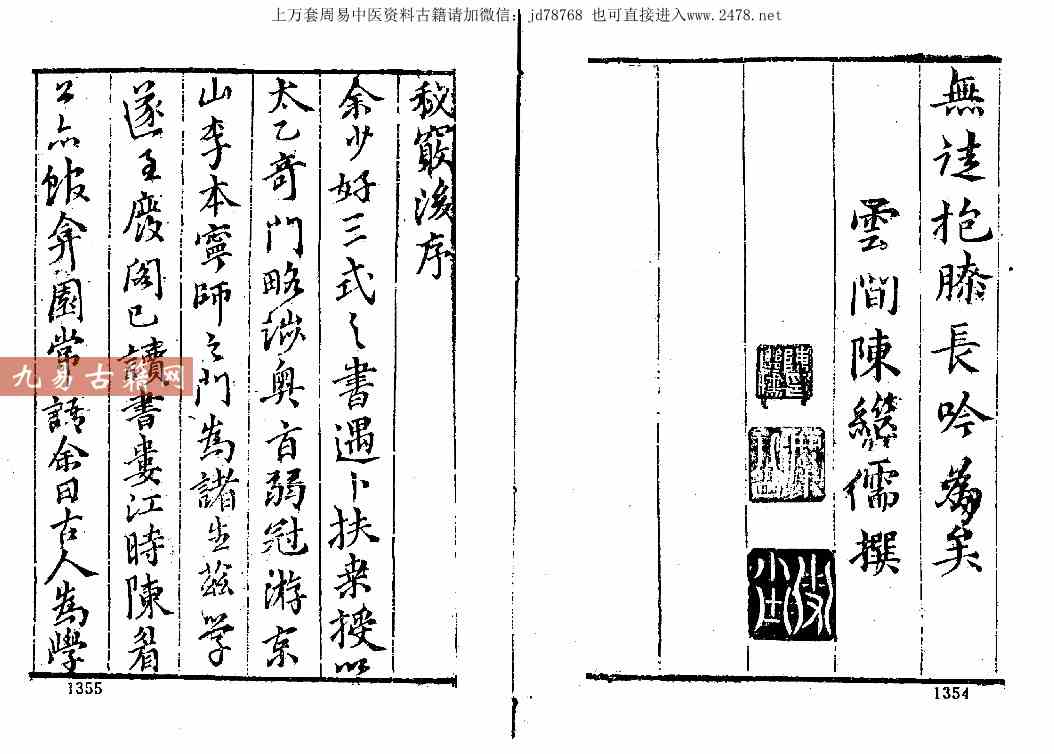 上万套周易中医资料古籍请加微信: jd78768 也可直接进入www.2478.net
無徒抱膝長吟為矣
雲間陳繼儒撰
1354
秘竅後序
余少好三式之書遇卜扶桒授以
太乙奇門略涉奧旨弱冠游京
山李本寧師之門為諸生茲学
遂至廢閣已讀書婁江時陳眉
公亦館弇園常語余曰古人為學
1355
九易古籍网